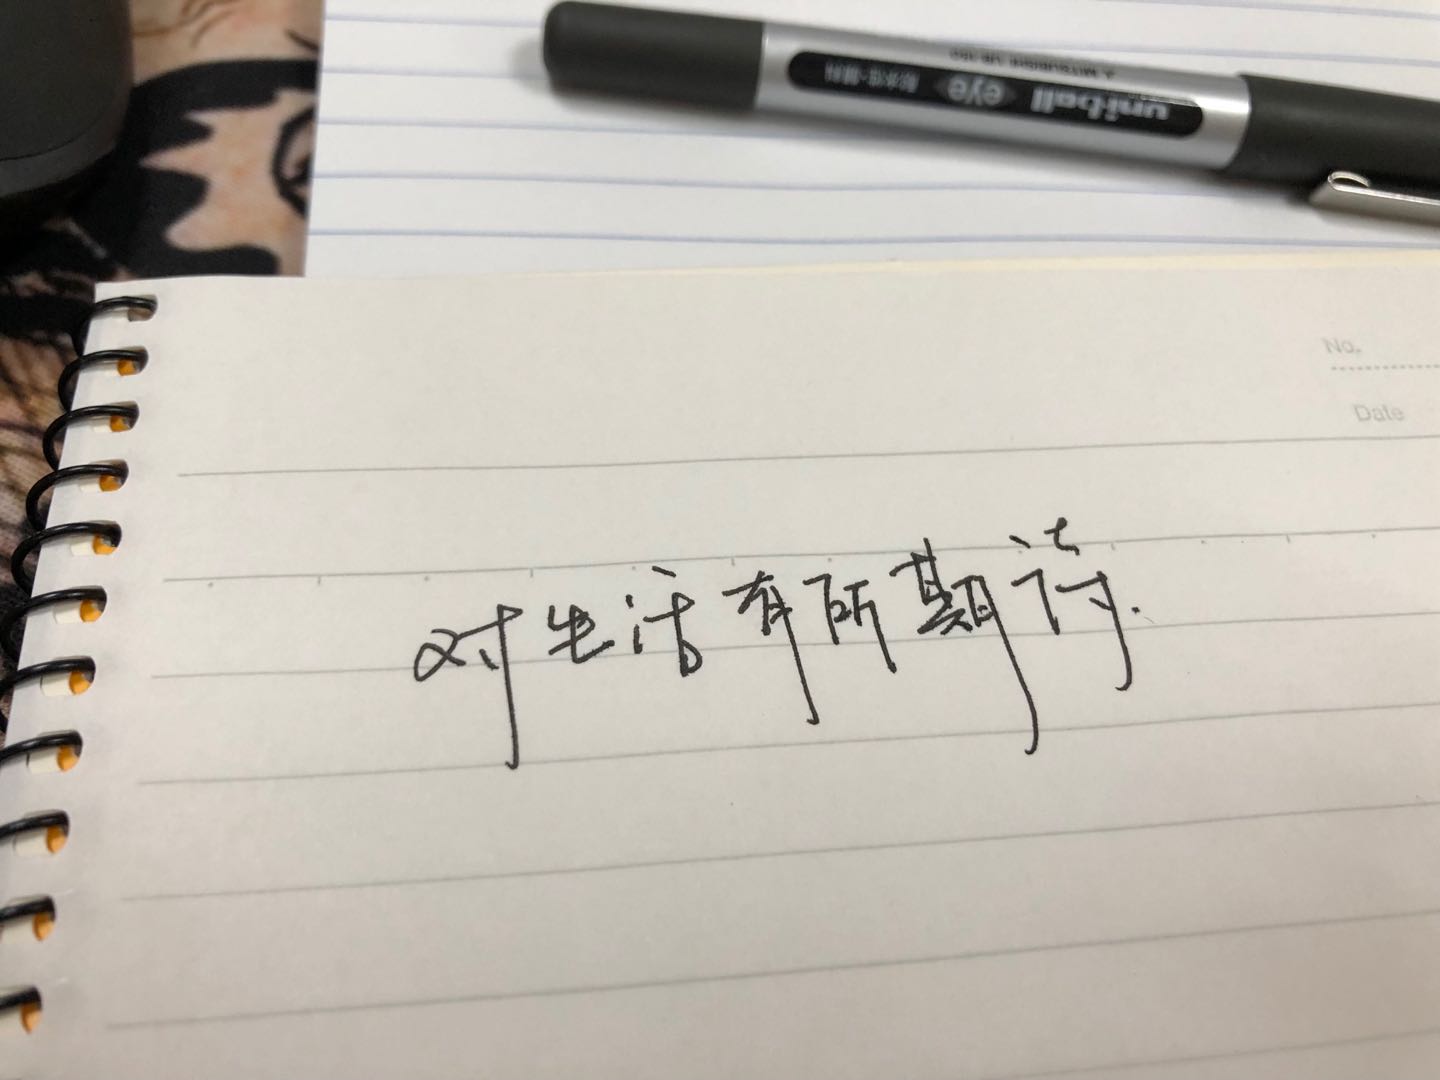 uni-ball eye 耐水性・顔料
MITSUBISHI UB-150
No.
Date
对生活有所期待.